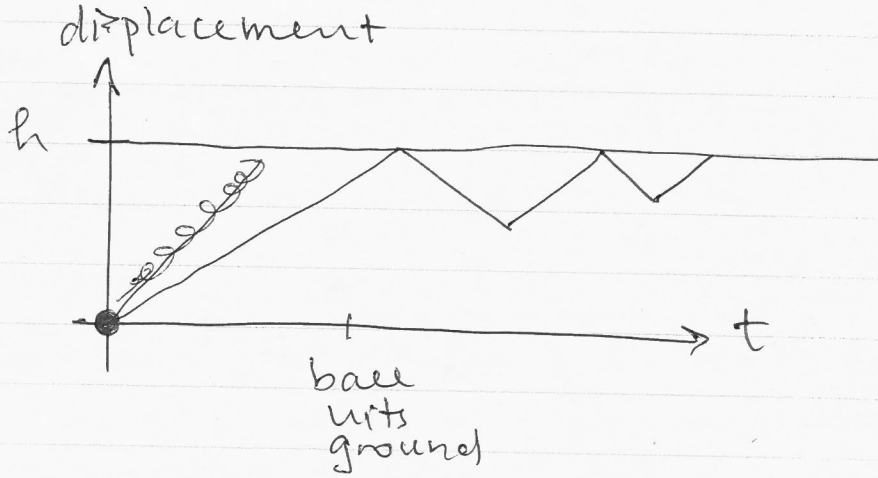 displacement
h
t
ball
hits
ground